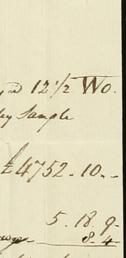 12 1/2 Wo.
Sample
£4752.10.-
5.18.9.
8.4